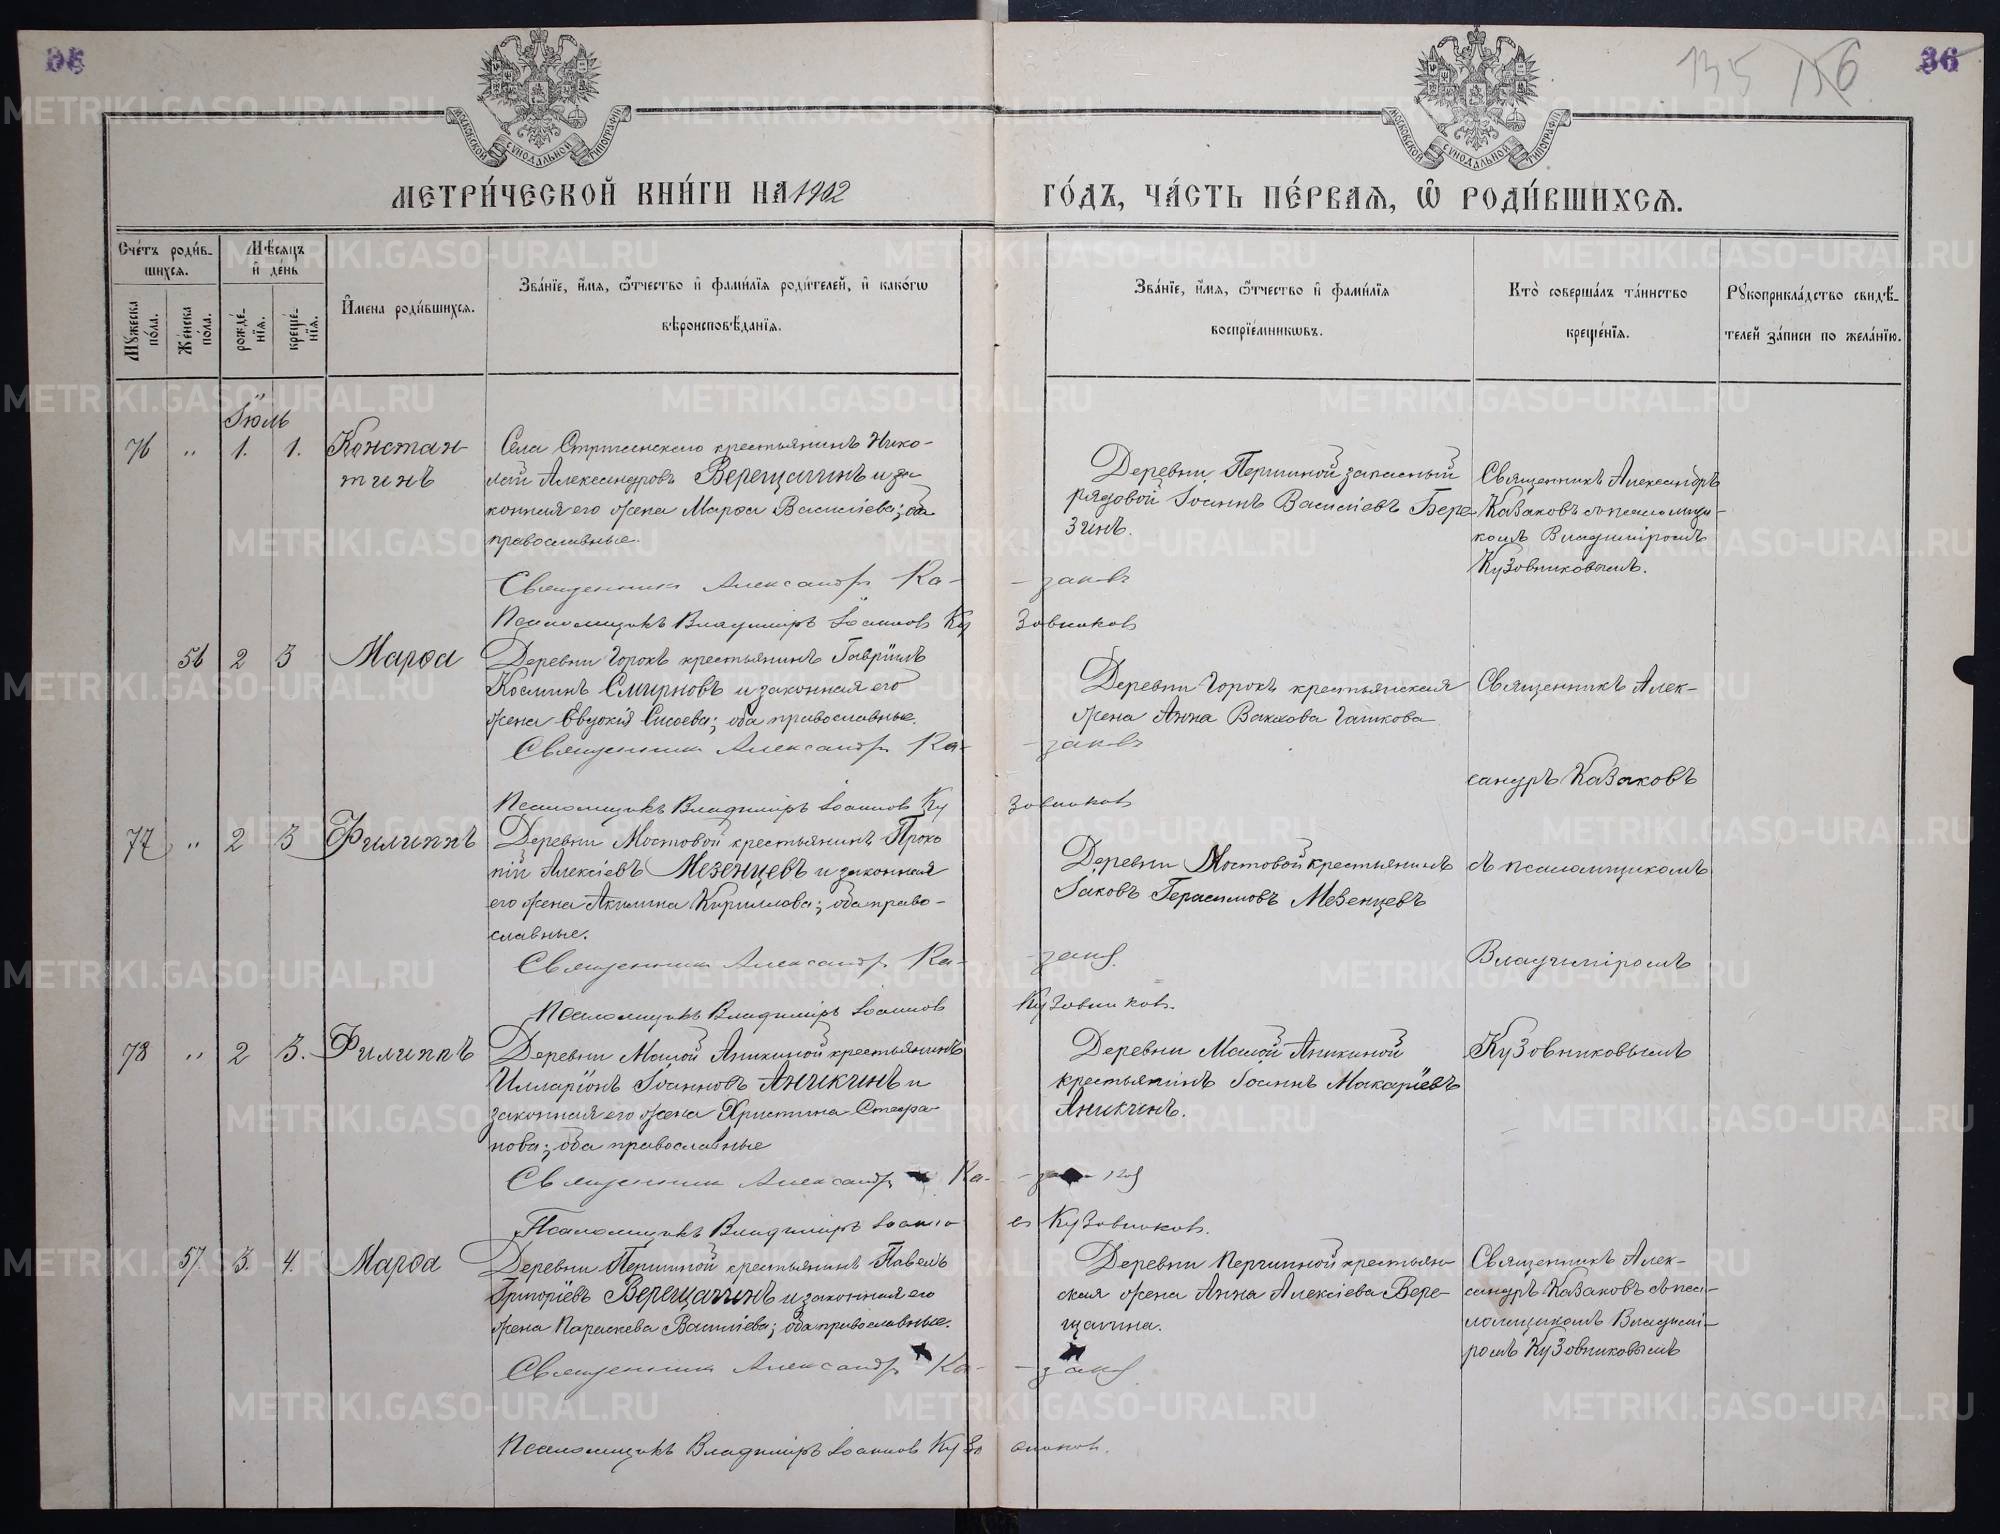 36
135 156
МОСКОВСКОЙ СѴНОДАЛЬНОЙ ТИПОГРАФІИ
МОСКОВСКОЙ СѴНОДАЛЬНОЙ ТИПОГРАФІИ
МЕТРИ́ЧЕСКОЙ КНИ́ГИ НА 1902
ГО́ДЪ, ЧА́СТЬ ПЕ́РВАѦ, Ѿ РОДИ́ВШИХСѦ.
Сче́тъ роди́в-
шихсѧ.
Мꙋжеска по́ла.
Же́нска по́ла.
Мѣ́сѧцъ
и҆ де́нь
рожде́-
нїѧ.
креще́-
нїѧ.
И҆мена роди́вшихсѧ.
Зва́нїе, и҆́мѧ, ѻ҆́тчество и҆ фами́лїѧ роди́телей, и҆ како́гѡ
вѣроисповѣ́данїѧ.
Зва́нїе, и҆́мѧ, ѻ҆́тчество и҆ фами́лїѧ
воспрїе́мникѡвъ.
Кто̀ соверша́лъ та́инство
креще́нїѧ.
Рꙋкоприкла́дство свидѣ́-
телей за́писи по жела́нїю.
Іюль
76 " 1. 1. Констан-
тинъ
Села крестьянинъ Нико-
лай Александровъ Верещагинъ и за-
конная его жена Марѳа Василіева; оба
православные.
Деревни Першиной запасный
рядовой Іоаннъ Василіевъ Бере-
зинъ.
Священникъ Александръ
Казаковъ съ псаломщи-
комъ Владиміромъ
Кузовниковымъ.
Священникъ Александръ Ка-
- заковъ
Псаломщикъ Владиміръ Іоанновъ Ку
зовниковъ
56 2 3 Марѳа
Деревни Горокъ крестьянинъ Гавріилъ
Косминъ Смирновъ и законная его
жена Евдокія Сисоева; оба православные.
Деревни Горокъ крестьянская
жена Анна
Священникъ Алек-
Священникъ Александръ Ка-
- заковъ
сандръ Казаковъ
Псаломщикъ Владиміръ Іоанновъ Ку
зовниковъ
77 " 2 3 Филиппъ
Деревни Мостовой крестьянинъ Проко
пій Алексіевъ Мезенцевъ и законная
его жена Акилина Кириллова; оба право-
славные.
Деревни Мостовой крестьянинъ
Іаковъ Герасимовъ Мезенцевъ
съ псаломщикомъ
Священникъ Александръ Ка-
- заковъ
Владиміромъ
Псаломщикъ Владиміръ Іоанновъ
Кузовниковъ.
78 " 2 3. Филиппъ
Деревни Малой Аникиной крестьянинъ
Илларіонъ Іоанновъ Аникинъ и
законная его жена Христина Стефа-
нова; оба православные
Деревни Малой Аникиной
крестьянинъ Іоаннъ Макаріевъ
Аникинъ.
Кузовниковымъ
Священникъ Александръ Ка-
Псаломщикъ Владиміръ Іоанно
въ Кузовниковъ.
57. 3. 4. Марѳа
Деревни Першиной крестьянинъ Павелъ
Григоріевъ Верещагинъ и законная его
жена Параскева Василіева; оба православные.
Деревни Першиной крестьян-
ская жена Анна Алексіева Вере-
щагина.
Священникъ Алек-
сандръ Казаковъ съ пса-
ломщикомъ Владимі-
ромъ Кузовниковымъ
Священникъ Александръ Ка-
- заковъ
Псаломщикъ Владиміръ Іоанновъ Кузо
вниковъ.
METRIKI.GASO-URAL.RU